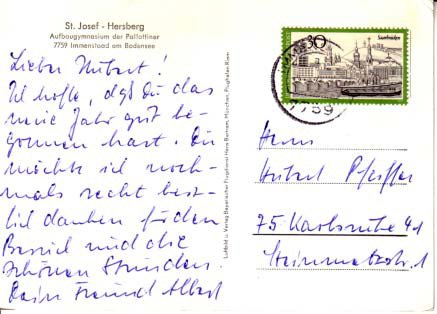 St. Josef - Hersberg
Aufbaugymnasium der Pallottiner
7759 Immenstaad am Bodensee
Lieber Hubert!
Ich hoffe, daß Du das
neue Jahr gut be-
gonnen hast. Du
möchte ich noch-
mals recht herz-
lich danken für den
Besuch und die
schönen Stunden.
Dein Freund Albert
Luftbild u. Verlag Bayerischer Flugdienst Hans Bertram, München - Flughafen Riem
30
Saarbrücken
7759
Herrn
Hubert Pfeiffer
75 Karlsruhe 41
Steinmetzstr. 1